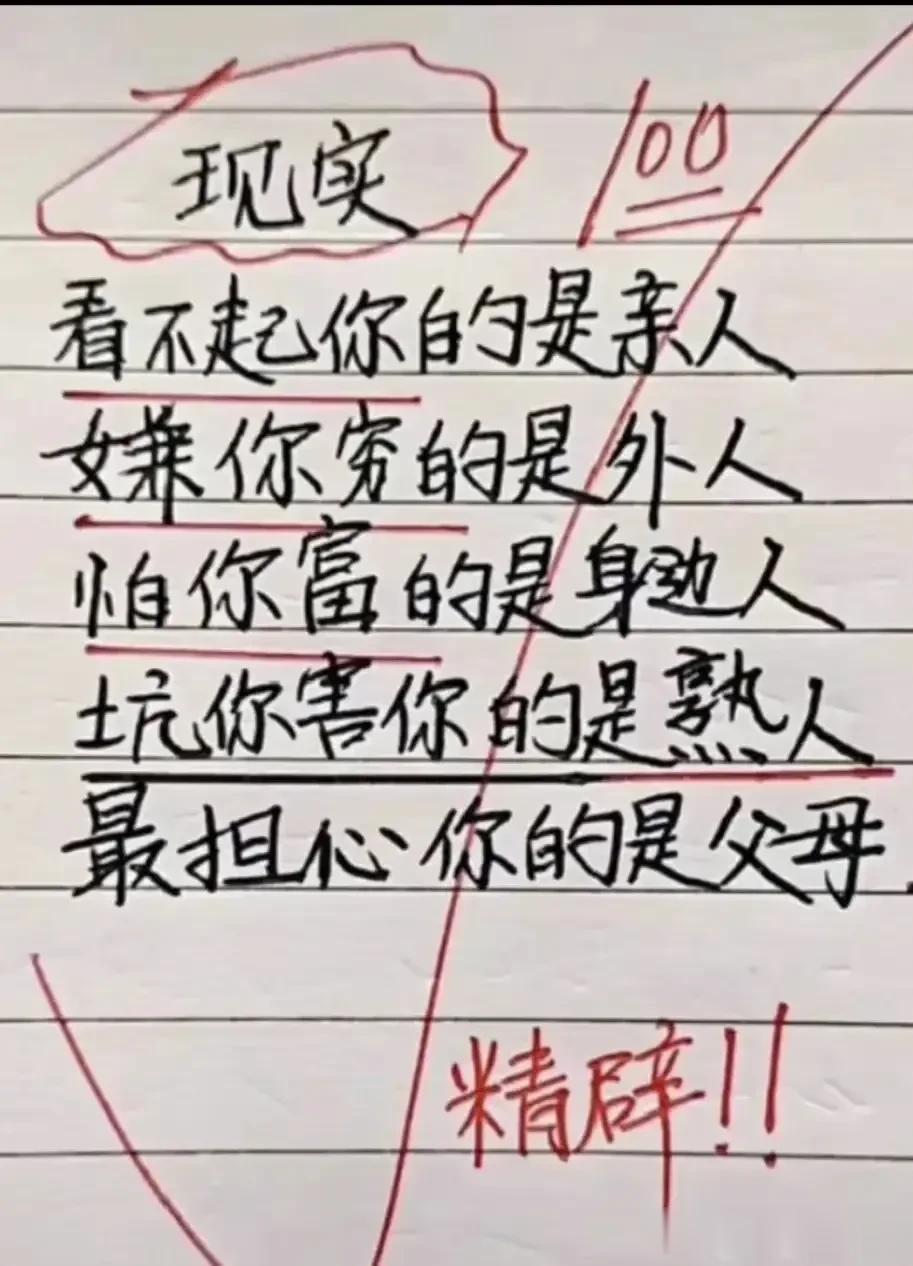 现实 100
看不起你的是亲人
嫌你穷的是外人
怕你富的是身边人
坑你害你的是熟人
最担心你的是父母.
精辟!!